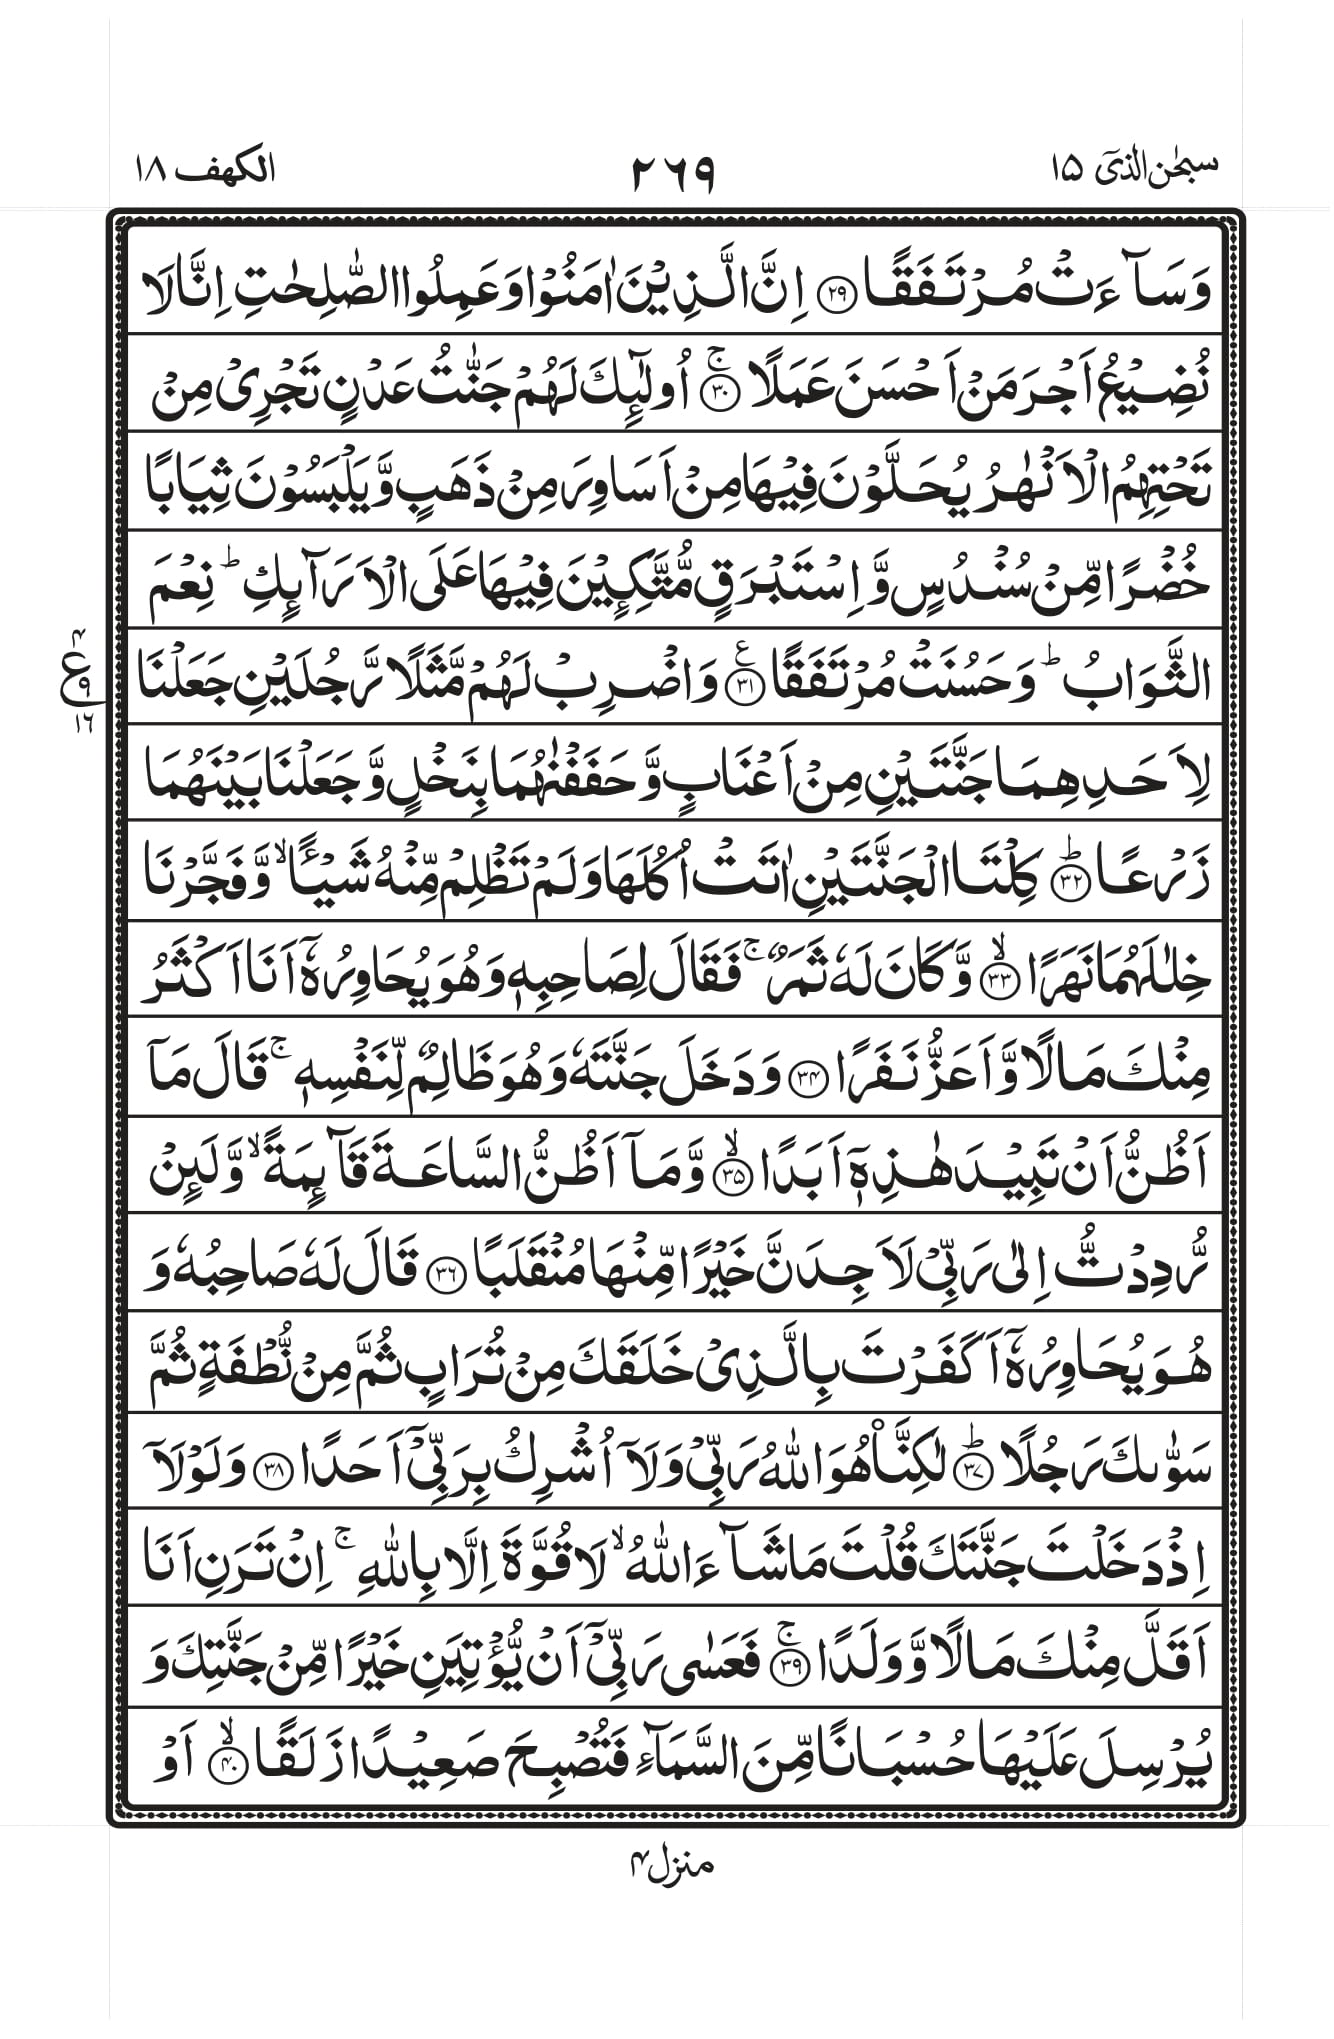 سبحٰن الذیۤ ۱۵ ۲۶۹ الکهف ۱۸
وَسَآءَتْ مُرْتَفَقًا ﴿۲۹﴾ اِنَّ الَّذِیْنَ اٰمَنُوْا وَعَمِلُوا الصّٰلِحٰتِ اِنَّا لَا
نُضِیْعُ اَجْرَ مَنْ اَحْسَنَ عَمَلًا ۚ﴿۳۰﴾ اُولٰٓئِكَ لَهُمْ جَنّٰتُ عَدْنٍ تَجْرِیْ مِنْ
تَحْتِهِمُ الْاَنْهٰرُ یُحَلَّوْنَ فِیْهَا مِنْ اَسَاوِرَ مِنْ ذَهَبٍ وَّیَلْبَسُوْنَ ثِیَابًا
خُضْرًا مِّنْ سُنْدُسٍ وَّاِسْتَبْرَقٍ مُّتَّكِـِٕیْنَ فِیْهَا عَلَی الْاَرَآىِٕكِ ؕ نِعْمَ
الثَّوَابُ ؕ وَحَسُنَتْ مُرْتَفَقًا ﴿۳۱﴾ۧ وَاضْرِبْ لَهُمْ مَّثَلًا رَّجُلَیْنِ جَعَلْنَا
۴ ع ۹ ۱۶
لِاَحَدِهِمَا جَنَّتَیْنِ مِنْ اَعْنَابٍ وَّحَفَفْنٰهُمَا بِنَخْلٍ وَّجَعَلْنَا بَیْنَهُمَا
زَرْعًا ؕ﴿۳۲﴾ كِلْتَا الْجَنَّتَیْنِ اٰتَتْ اُكُلَهَا وَلَمْ تَظْلِمْ مِّنْهُ شَیْـًٔا ۙ وَّفَجَّرْنَا
خِلٰلَهُمَا نَهَرًا ۙ﴿۳۳﴾ وَّكَانَ لَهٗ ثَمَرٌ ۚ فَقَالَ لِصَاحِبِهٖ وَهُوَ یُحَاوِرُهٗۤ اَنَا اَكْثَرُ
مِنْكَ مَالًا وَّاَعَزُّ نَفَرًا ﴿۳۴﴾ وَدَخَلَ جَنَّتَهٗ وَهُوَ ظَالِمٌ لِّنَفْسِهٖ ۚ قَالَ مَاۤ
اَظُنُّ اَنْ تَبِیْدَ هٰذِهٖۤ اَبَدًا ۙ﴿۳۵﴾ وَّمَاۤ اَظُنُّ السَّاعَةَ قَآىِٕمَةً ۙ وَّلَىِٕنْ
رُّدِدْتُّ اِلٰی رَبِّیْ لَاَجِدَنَّ خَیْرًا مِّنْهَا مُنْقَلَبًا ﴿۳۶﴾ قَالَ لَهٗ صَاحِبُهٗ وَ
هُوَ یُحَاوِرُهٗۤ اَكَفَرْتَ بِالَّذِیْ خَلَقَكَ مِنْ تُرَابٍ ثُمَّ مِنْ نُّطْفَةٍ ثُمَّ
سَوّٰىكَ رَجُلًا ؕ﴿۳۷﴾ لٰكِنَّا۠ هُوَ اللّٰهُ رَبِّیْ وَلَاۤ اُشْرِكُ بِرَبِّیْۤ اَحَدًا ﴿۳۸﴾ وَلَوْلَاۤ
اِذْ دَخَلْتَ جَنَّتَكَ قُلْتَ مَا شَآءَ اللّٰهُ ۙ لَا قُوَّةَ اِلَّا بِاللّٰهِ ۚ اِنْ تَرَنِ اَنَا
اَقَلَّ مِنْكَ مَالًا وَّوَلَدًا ۚ﴿۳۹﴾ فَعَسٰی رَبِّیْۤ اَنْ یُّؤْتِیَنِ خَیْرًا مِّنْ جَنَّتِكَ وَ
یُرْسِلَ عَلَیْهَا حُسْبَانًا مِّنَ السَّمَآءِ فَتُصْبِحَ صَعِیْدًا زَلَقًا ۙ﴿۴۰﴾ اَوْ
منزل۴